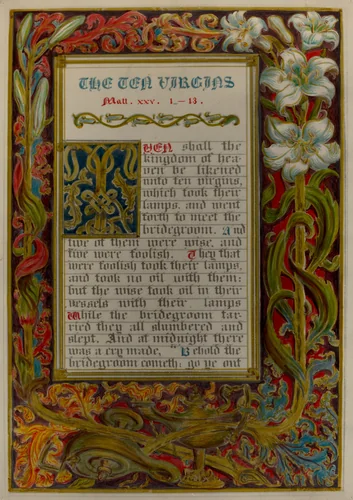 THE TEN VIRGINS
Matt. xxv. 1.–13.
THEN shall the
kingdom of hea-
ven be likened
unto ten virgins,
which took their
lamps, and went
forth to meet the
bridegroom. And
five of them were wise, and
five were foolish. They that
were foolish took their lamps,
and took no oil with them:
but the wise took oil in their
vessels with their lamps
While the bridegroom tar-
ried they all slumbered and
slept. And at midnight there
was a cry made, "Behold the
bridegroom cometh; go ye out